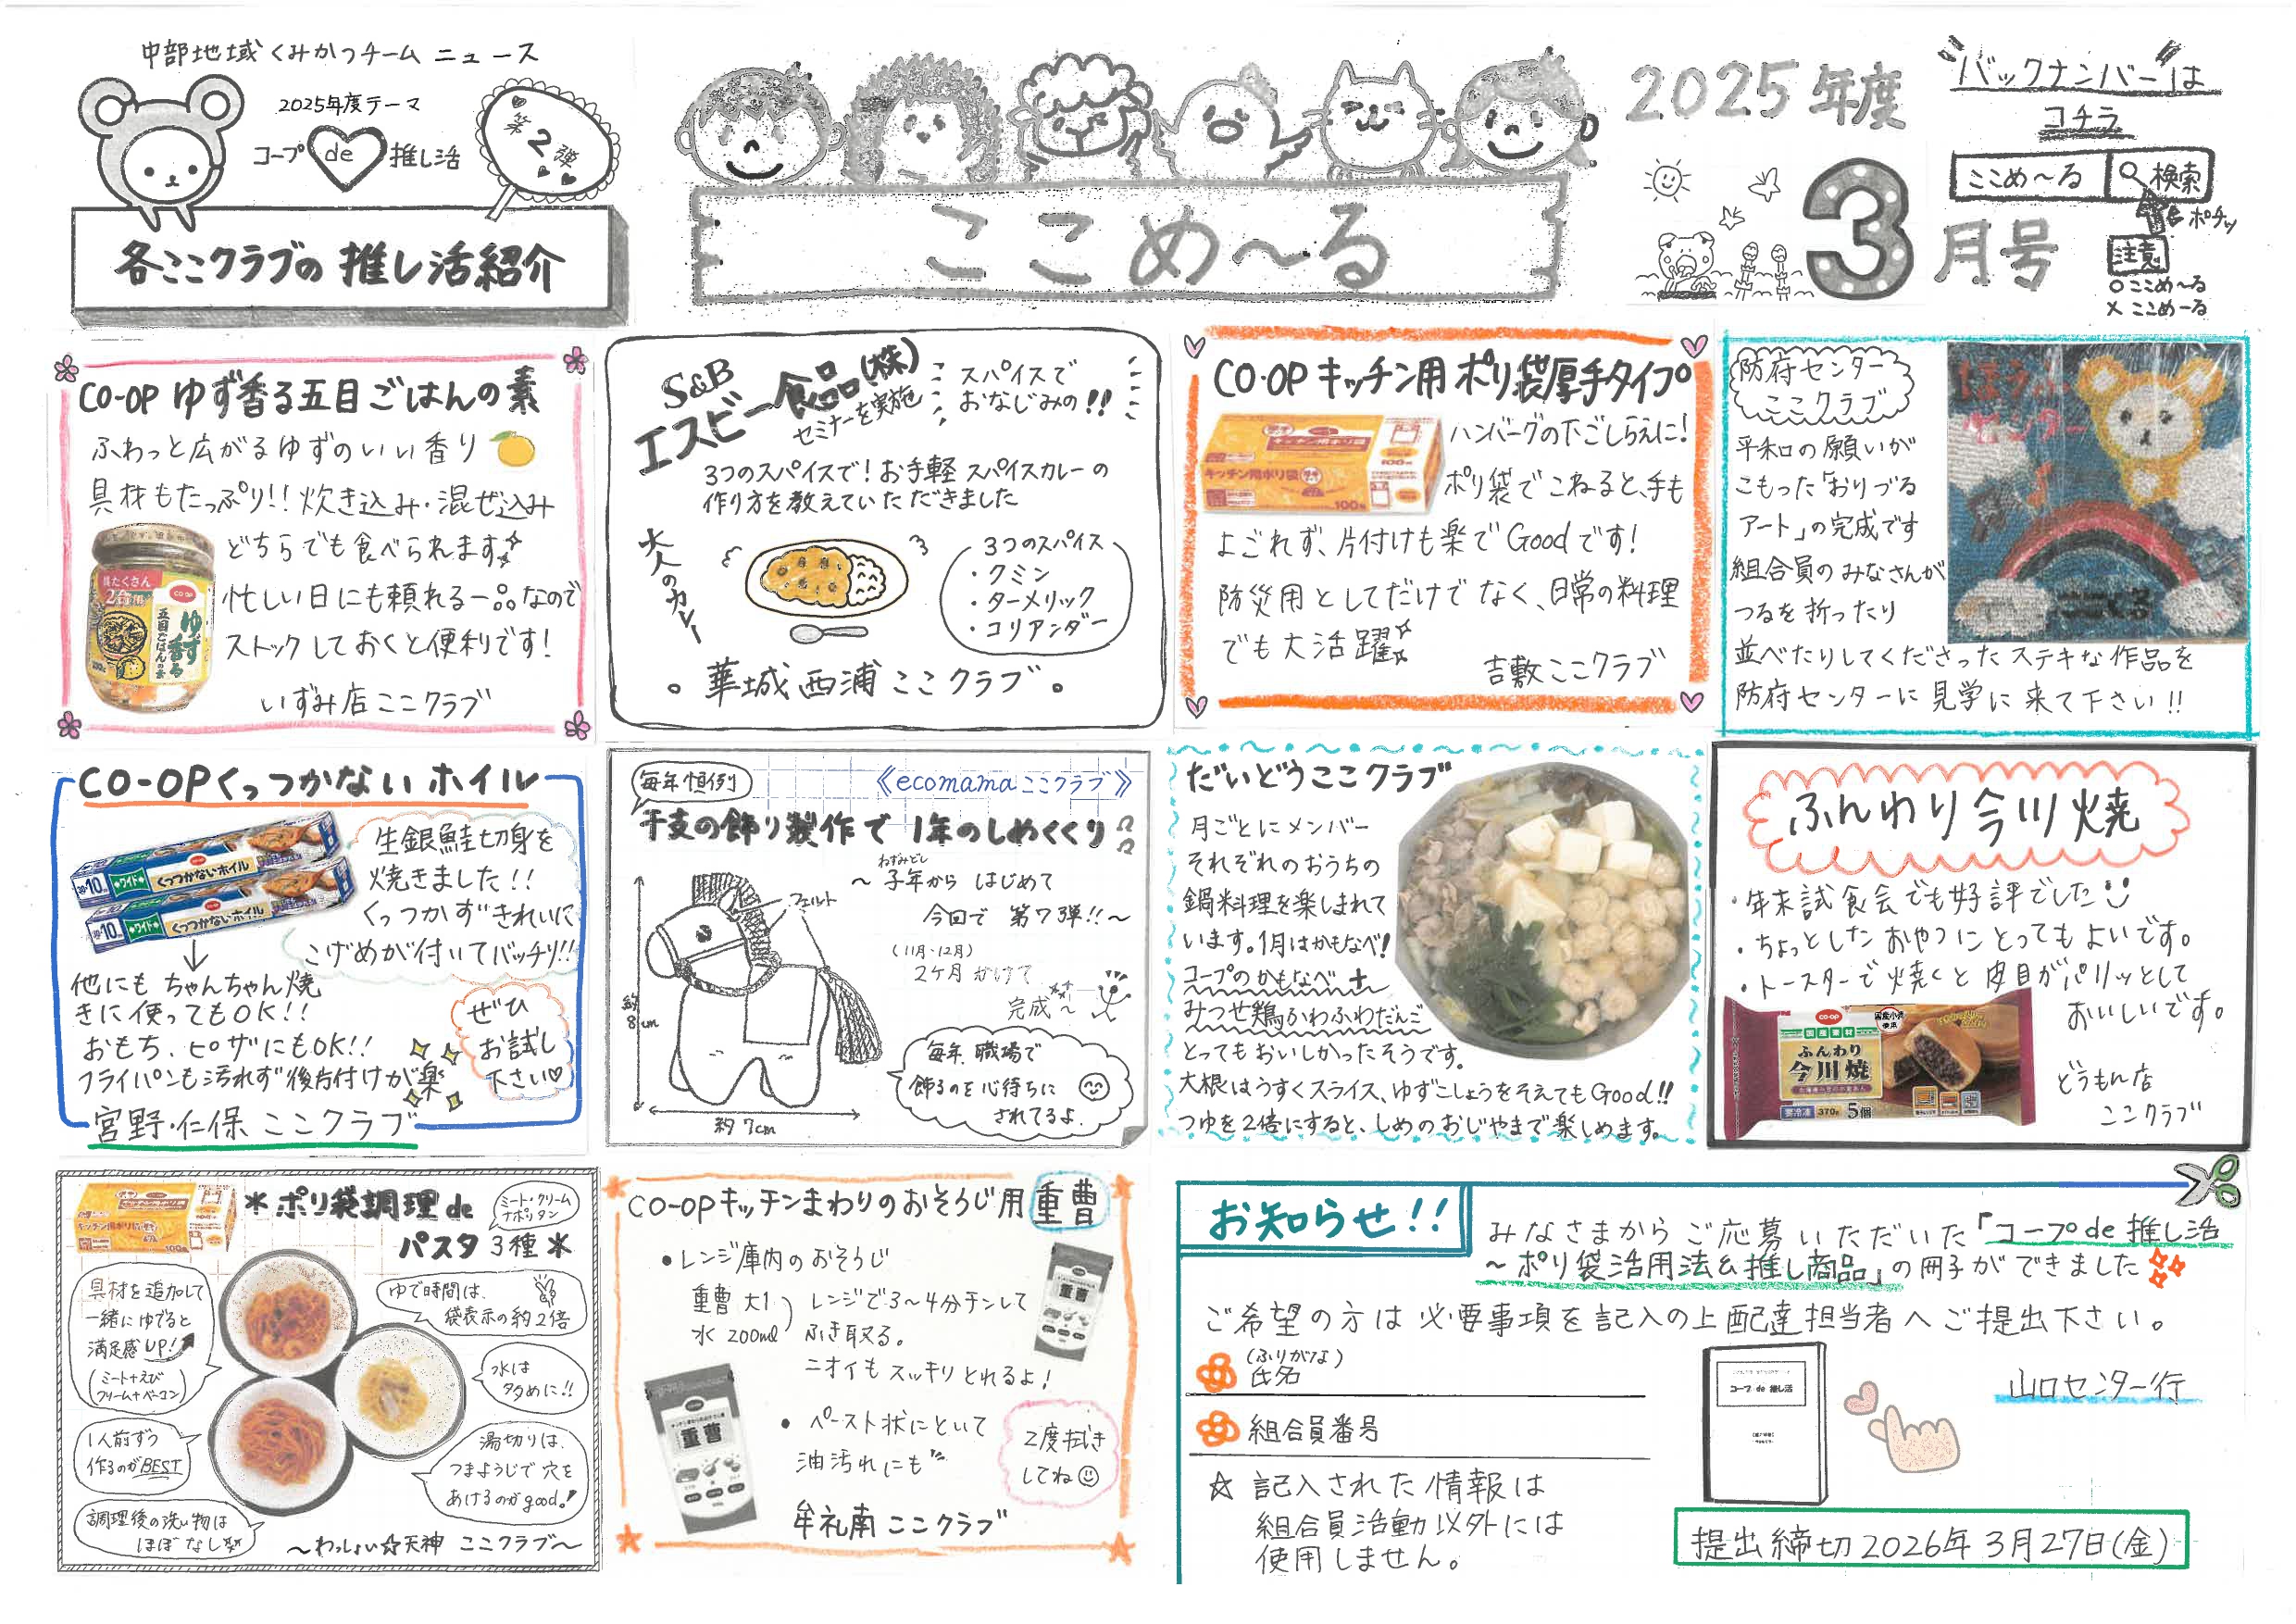 中部地域くみかつチーム ニュース
2025年度テーマ
コープ de 推し活
第2弾
各ここクラブの 推し活紹介
ここめ〜る
2025年度
3月号
"バックナンバー"は
コチラ
ここめ〜る 検索
ポチッ
注意
○ここめ〜る
×ここめーる
CO-OP ゆず香る五目ごはんの素
ふわっと広がるゆずのいい香り
具材もたっぷり!! 炊き込み・混ぜ込み
どちらでも食べられます
忙しい日にも頼れる一品なので
ストックしておくと便利です!
いずみ店ここクラブ
具たくさん
ゆず香る
五目ごはんの素
S&B
エスビー食品(株)
セミナーを実施
スパイスで
おなじみの!!
3つのスパイスで! お手軽 スパイスカレーの
作り方を教えていただきました
大人のカレー
3つのスパイス
・クミン
・ターメリック
・コリアンダー
。華城西浦ここクラブ。
CO・OP キッチン用 ポリ袋厚手タイプ
キッチン用ポリ袋
ハンバーグの下ごしらえに!
ポリ袋でこねると、手も
よごれず、片付けも楽でGoodです!
防災用としてだけでなく、日常の料理
でも大活躍
吉敷ここクラブ
防府センター
ここクラブ
平和の願いが
こもった「おりづる
アート」の完成です
組合員のみなさんが
つるを折ったり
並べたりしてくださったステキな作品を
防府センターに見学に来て下さい!!
CO-OPくっつかないホイル
くっつかないホイル
くっつかないホイル
生銀鮭切身を
焼きました!!
くっつかずきれいに
こげめが付いてバッチリ!!
他にも ちゃんちゃん焼
きに使ってもOK!!
おもち、ピザにもOK!!
フライパンも汚れず後片付けが楽
ぜひ
お試し
下さい♡
宮野・仁保 ここクラブ
毎年恒例
《ecomamaここクラブ》
干支の飾り製作で 1年のしめくくり
フェルト
ねずみどし
〜子年から はじめて
今回で 第7弾!!〜
(11月・12月)
2ヶ月かけて
完成〜
約8cm
約7cm
毎年、職場で
飾るのを心待ちに
されてるよ.
だいどうここクラブ
月ごとにメンバー
それぞれのおうちの
鍋料理を楽しまれて
います。1月はかもなべ!
コープのかもなべ+
みつせ鶏ふわふわだんご
とってもおいしかったそうです。
大根はうすくスライス、ゆずこしょうをそえてもGood!!
つゆを2倍にすると、しめのおじやまで楽しめます。
ふんわり今川焼
・年末試食会でも好評でした
・ちょっとしたおやつにとってもよいです。
・トースターで焼くと皮目がパリッとして
おいしいです。
どうもん店
ここクラブ
国産素材
ふんわり
今川焼
要冷凍 370g 5個
*ポリ袋調理de
パスタ3種*
ミート・クリーム
ナポリタン
具材を追加して
一緒にゆでると
満足感UP!
(ミート+えび
クリーム+ベーコン)
ゆで時間は、
袋表示の約2倍
水は
多めに!!
1人前ずつ
作るのがBEST
湯切りは、
つまようじで穴を
あけるのがgood!
調理後の洗い物は
ほぼなし
〜わっしょい☆天神 ここクラブ〜
CO-OPキッチンまわりのおそうじ用重曹
・レンジ庫内のおそうじ
重曹 大1
水 200ml
レンジで3〜4分チンして
ふき取る。
ニオイもスッキリとれるよ!
重曹
重曹
・ペースト状にといて
油汚れにも
2度拭き
してね
牟礼南ここクラブ
お知らせ!!
みなさまからご応募いただいた「コープde推し活
〜ポリ袋活用法&推し商品」の冊子ができました
ご希望の方は必要事項を記入の上配達担当者へご提出下さい。
(ふりがな)
氏名
組合員番号
☆ 記入された情報は
組合員活動以外には
使用しません。
コープ de 推し活
山口センター行
提出締切2026年3月27日(金)